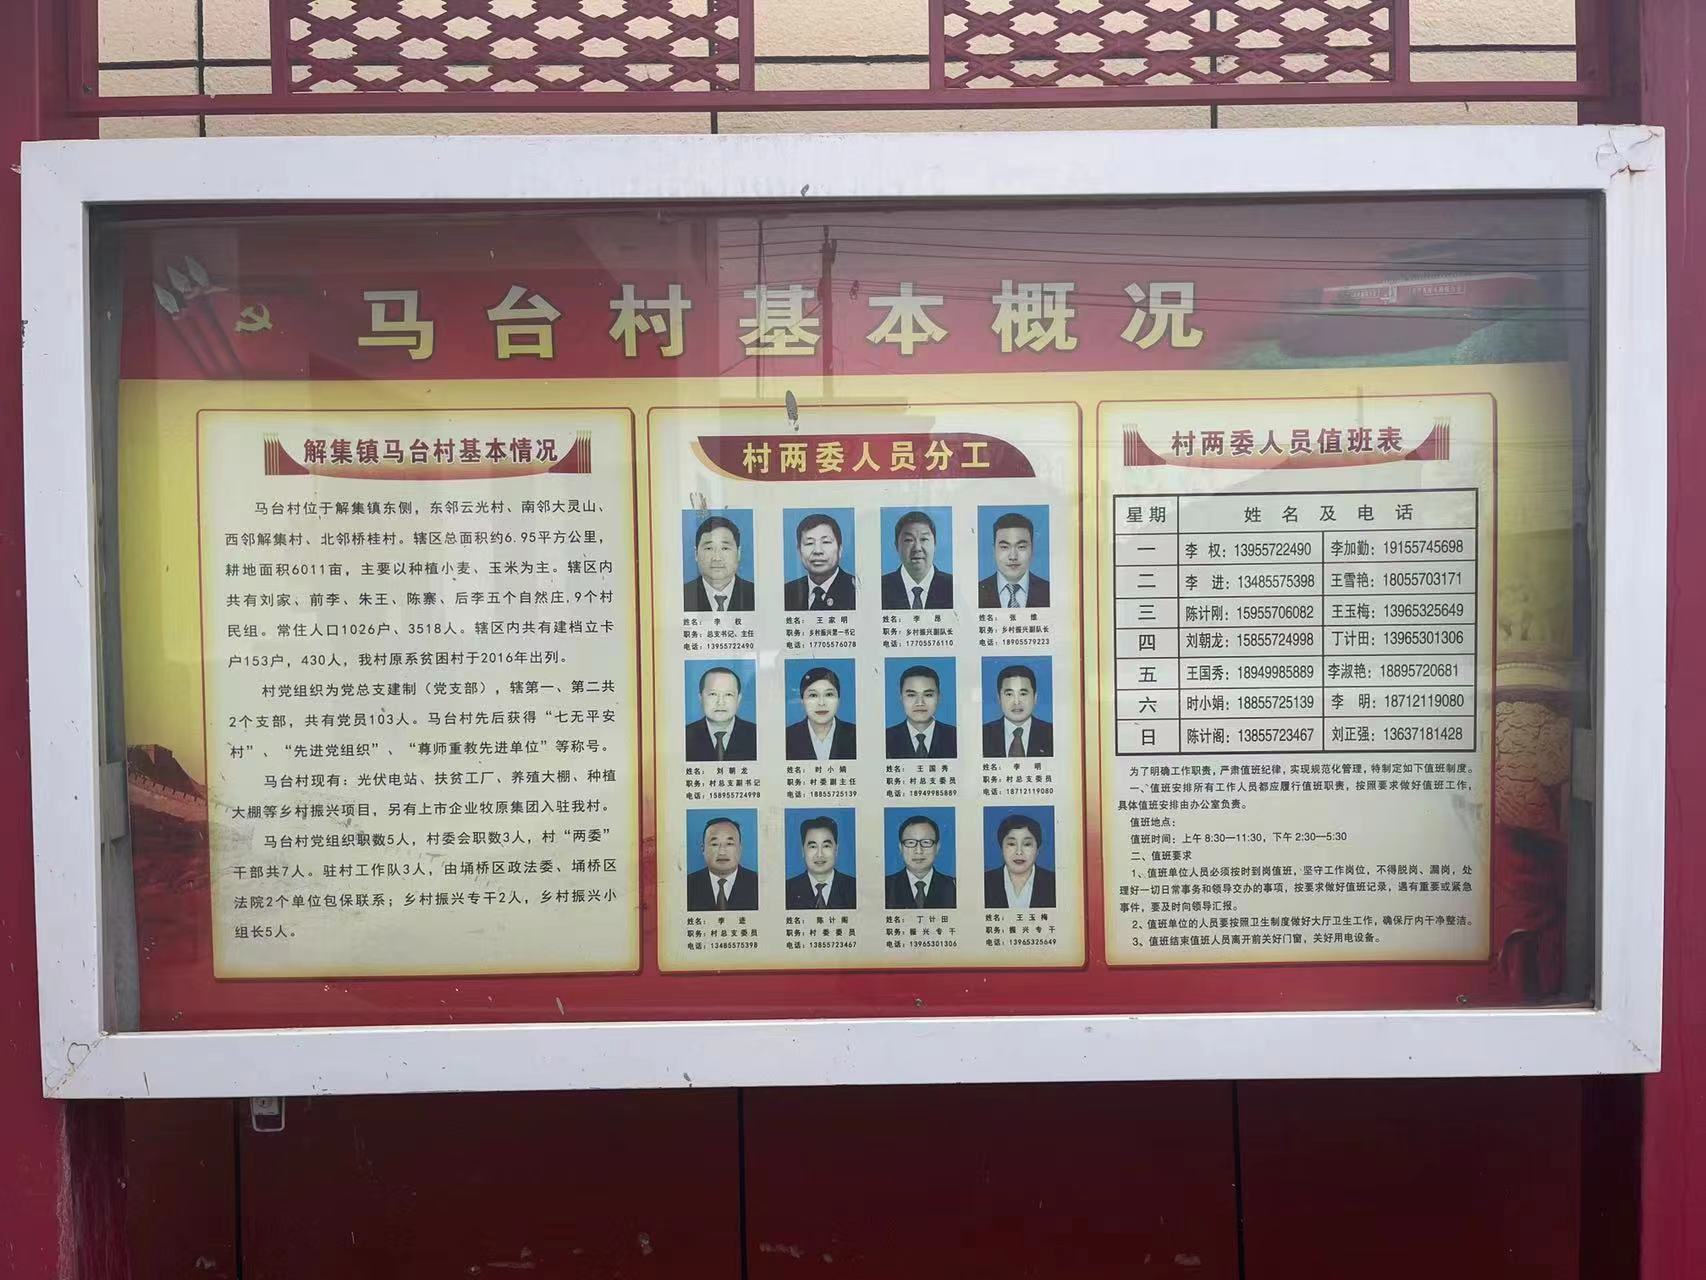 马台村基本概况
解集镇马台村基本情况
马台村位于解集镇东侧，东邻云光村、南邻大灵山、
西邻解集村、北邻桥桂村。辖区总面积约6.95平方公里，
耕地面积6011亩，主要以种植小麦、玉米为主。辖区内
共有刘家、前李、朱王、陈寨、后李五个自然庄,9个村
民组。常住人口1026户、3518人。辖区内共有建档立卡
户153户，430人，我村原系贫困村于2016年出列。
村党组织为党总支建制（党支部），辖第一、第二共
2个支部，共有党员103人。马台村先后获得“七无平安
村”、“先进党组织”、“尊师重教先进单位”等称号。
马台村现有：光伏电站、扶贫工厂、养殖大棚、种植
大棚等乡村振兴项目，另有上市企业牧原集团入驻我村。
马台村党组织职数5人，村委会职数3人，村“两委”
干部共7人。驻村工作队3人，由埇桥区政法委、埇桥区
法院2个单位包保联系；乡村振兴专干2人，乡村振兴小
组长5人。
村两委人员分工
姓名：李 权
职务：总支书记、主任
电话：13955722490
姓名：王家明
职务：乡村振兴第一书记
电话：17705576078
姓名：李 昂
职务：乡村振兴副队长
电话：17705576110
姓名：张 维
职务：乡村振兴副队长
电话：18905579223
姓名：刘朝龙
职务：村总支副书记
电话：158955724998
姓名：时小娟
职务：村委副主任
电话：18855725139
姓名：王国秀
职务：村总支委员
电话：18949985889
姓名：李 明
职务：村总支委员
电话：18712119080
姓名：李 进
职务：村总支委员
电话：13485575398
姓名：陈计阁
职务：村委委员
电话：13855723467
姓名：丁计田
职务：振兴专干
电话：13965301306
姓名：王玉梅
职务：振兴专干
电话：13965325649
村两委人员值班表
星期 姓名及电话
一 李 权：13955722490 李加勤：19155745698
二 李 进：13485575398 王雪艳：18055703171
三 陈计刚：15955706082 王玉梅：13965325649
四 刘朝龙：15855724998 丁计田：13965301306
五 王国秀：18949985889 李淑艳：18895720681
六 时小娟：18855725139 李 明：18712119080
日 陈计阁：13855723467 刘正强：13637181428
为了明确工作职责，严肃值班纪律，实现规范化管理，特制定如下值班制度。
一、值班安排所有工作人员都应履行值班职责，按照要求做好值班工作，
具体值班安排由办公室负责。
值班地点：
值班时间：上午 8:30—11:30，下午 2:30—5:30
二、值班要求
1、值班单位人员必须按时到岗值班，坚守工作岗位，不得脱岗、漏岗，处
理好一切日常事务和领导交办的事项，按要求做好值班记录，遇有重要或紧急
事件，要及时向领导汇报。
2、值班单位的人员要按照卫生制度做好大厅卫生工作，确保厅内干净整洁。
3、值班结束值班人员离开前关好门窗，关好用电设备。